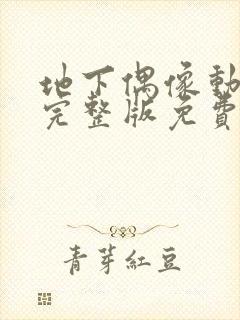 地下偶像動
完整版免費
青芽紅豆